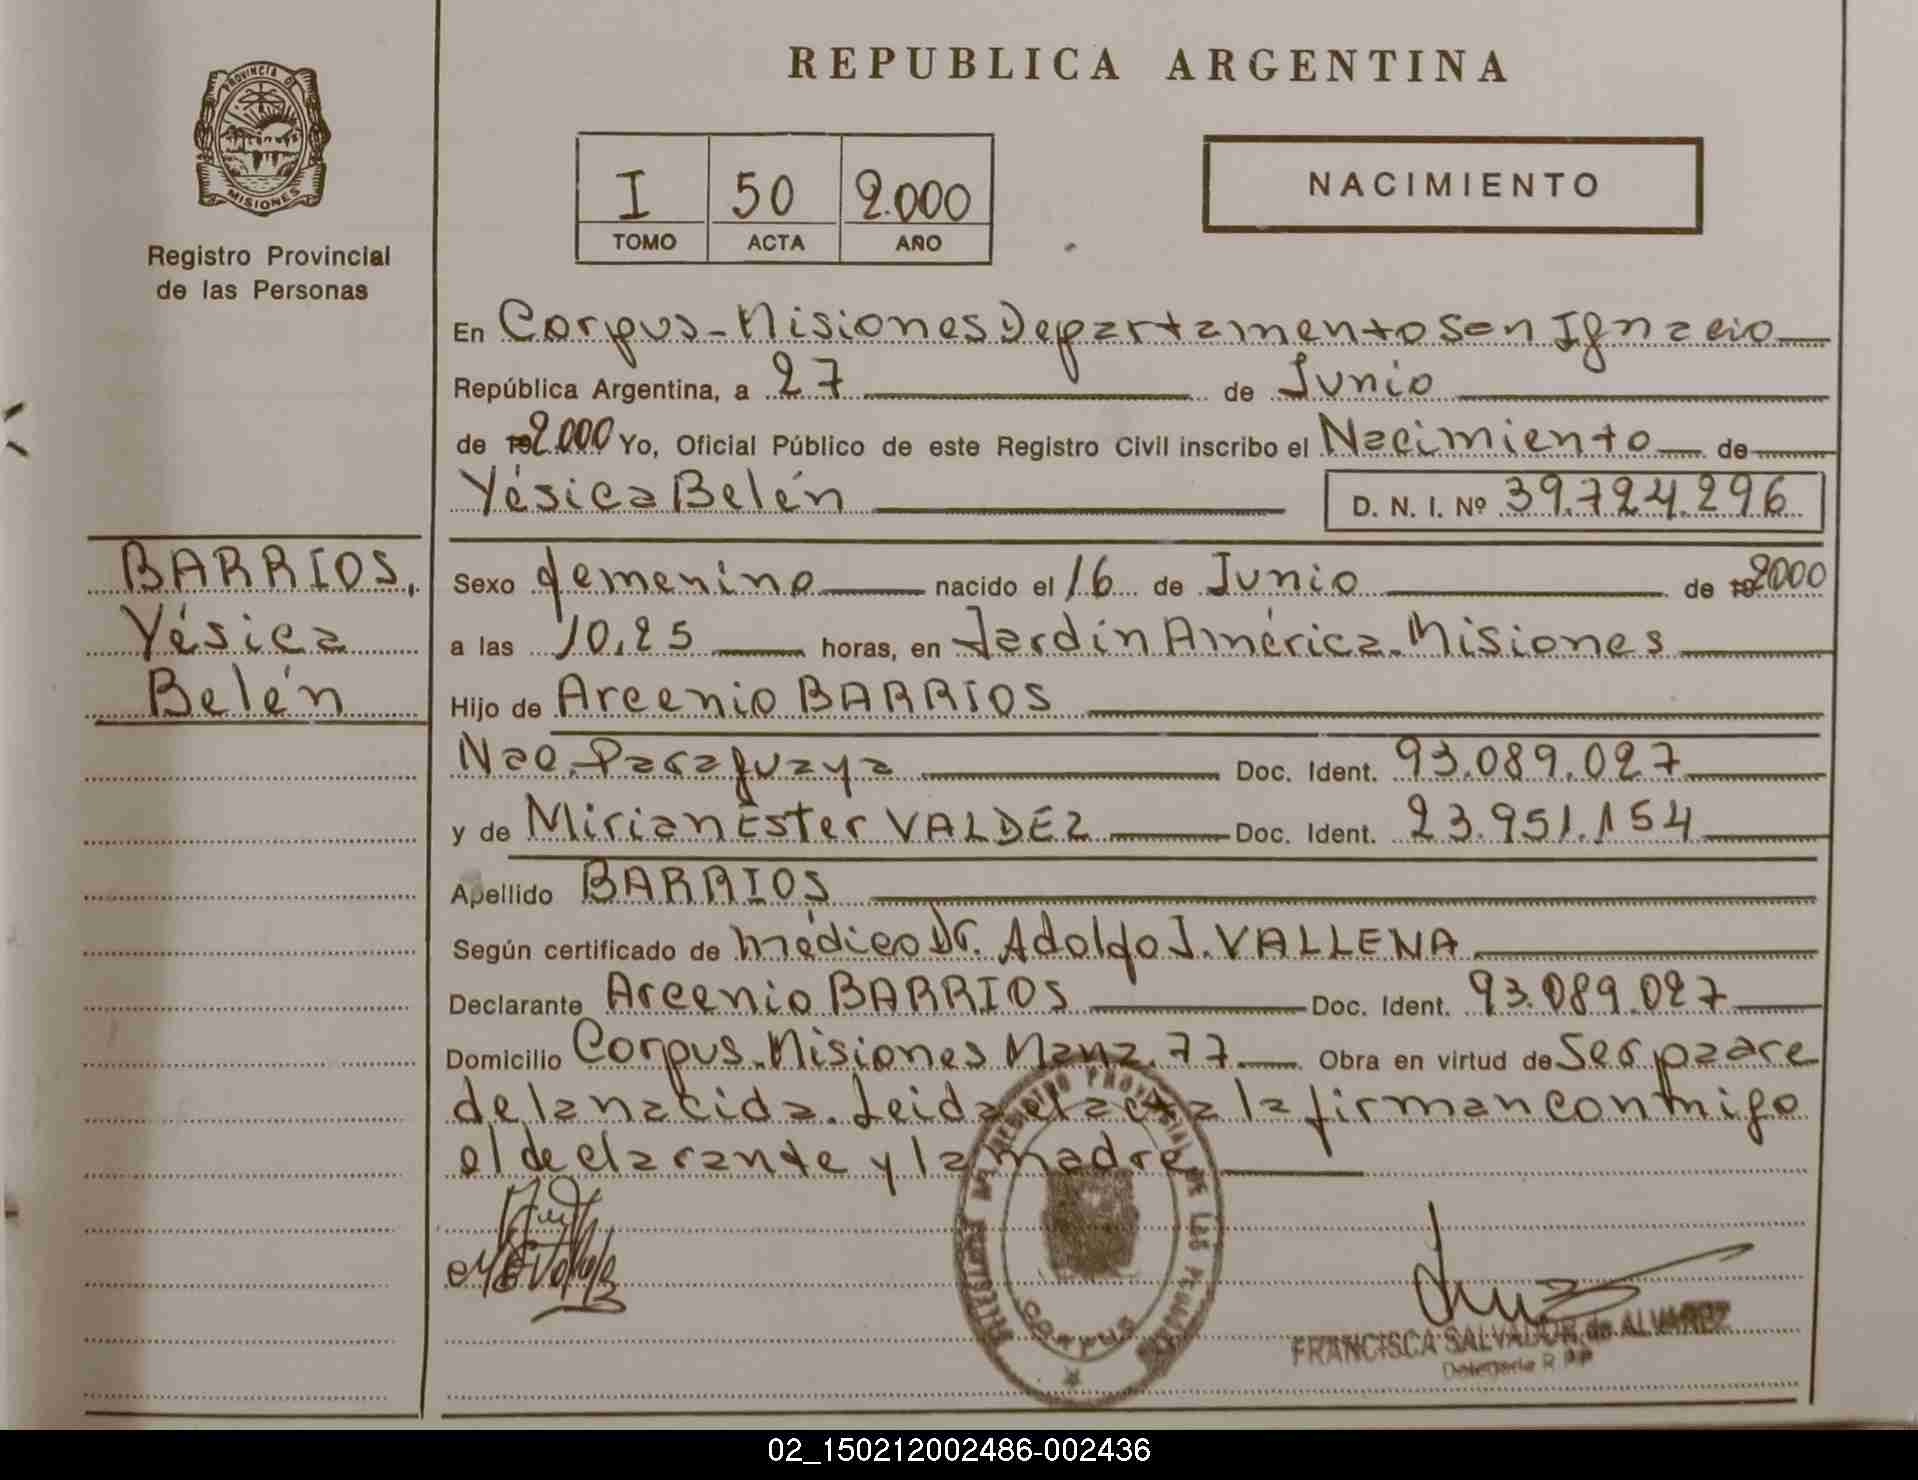 REPUBLICA ARGENTINA
PROVINCIA DE
MISIONES
Registro Provincial
de las Personas
I 50 2.000
TOMO ACTA AÑO
NACIMIENTO
En Corpus-Misiones Departamento San Ignacio
República Argentina, a 27 de Junio
de 19 2.000 Yo, Oficial Público de este Registro Civil inscribo el Nacimiento de
Yésica Belén D. N. I. Nº 39.724.296
BARRIOS,
Yésica
Belén
Sexo femenino nacido el 16 de Junio de 19 2000
a las 10,25 horas, en Jardín América. Misiones
Hijo de Arcenio BARRIOS
Nac. Paraguaya Doc. Ident. 93.089.027
y de Mirian Ester VALDEZ Doc. Ident. 23.951.154
Apellido BARRIOS
Según certificado de médico Dr. Adolfo J. VALLENA
Declarante Arcenio BARRIOS Doc. Ident. 93.089.027
Domicilio Corpus. Misiones Manz. 77. Obra en virtud de Ser padre
de la nacida. Leida el acta la firman conmigo
el declarante y la madre
REGISTRO PROVINCIAL DE LAS PERSONAS
CORPUS
FRANCISCA SALVADOR de ALVAREZ
Delegada R.P.P
02_150212002486-002436